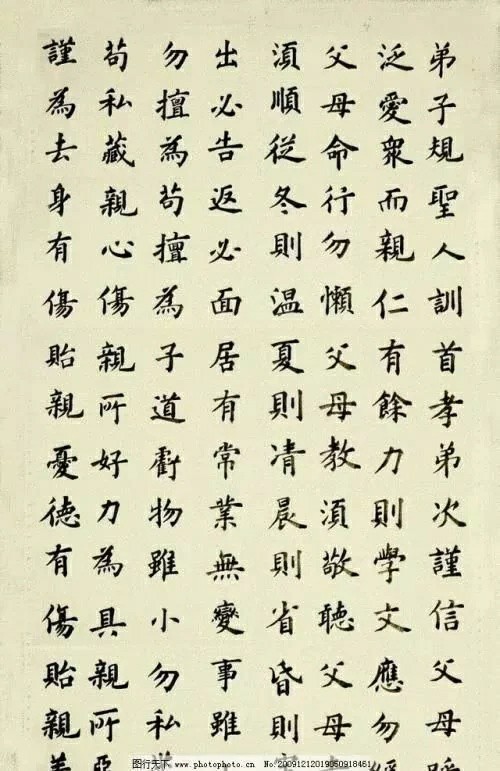 弟子規聖人訓首孝弟次謹信父母
泛愛衆而親仁有餘力則學文應勿
父母命行勿懶父母教湏敬聽父母
湏順從冬則温夏則凊晨則省昏則
出必告返必面居有常業無變事雖
勿擅為苟擅為子道虧物雖小勿私
苟私藏親心傷親所好力為具親所
謹為去身有傷貽親憂德有傷貽親
图行天下 www.photophoto.cn No.20091212019050918461